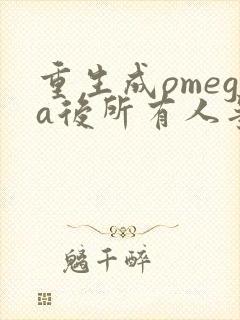 重生成omeg
a後所有人
魑千醉